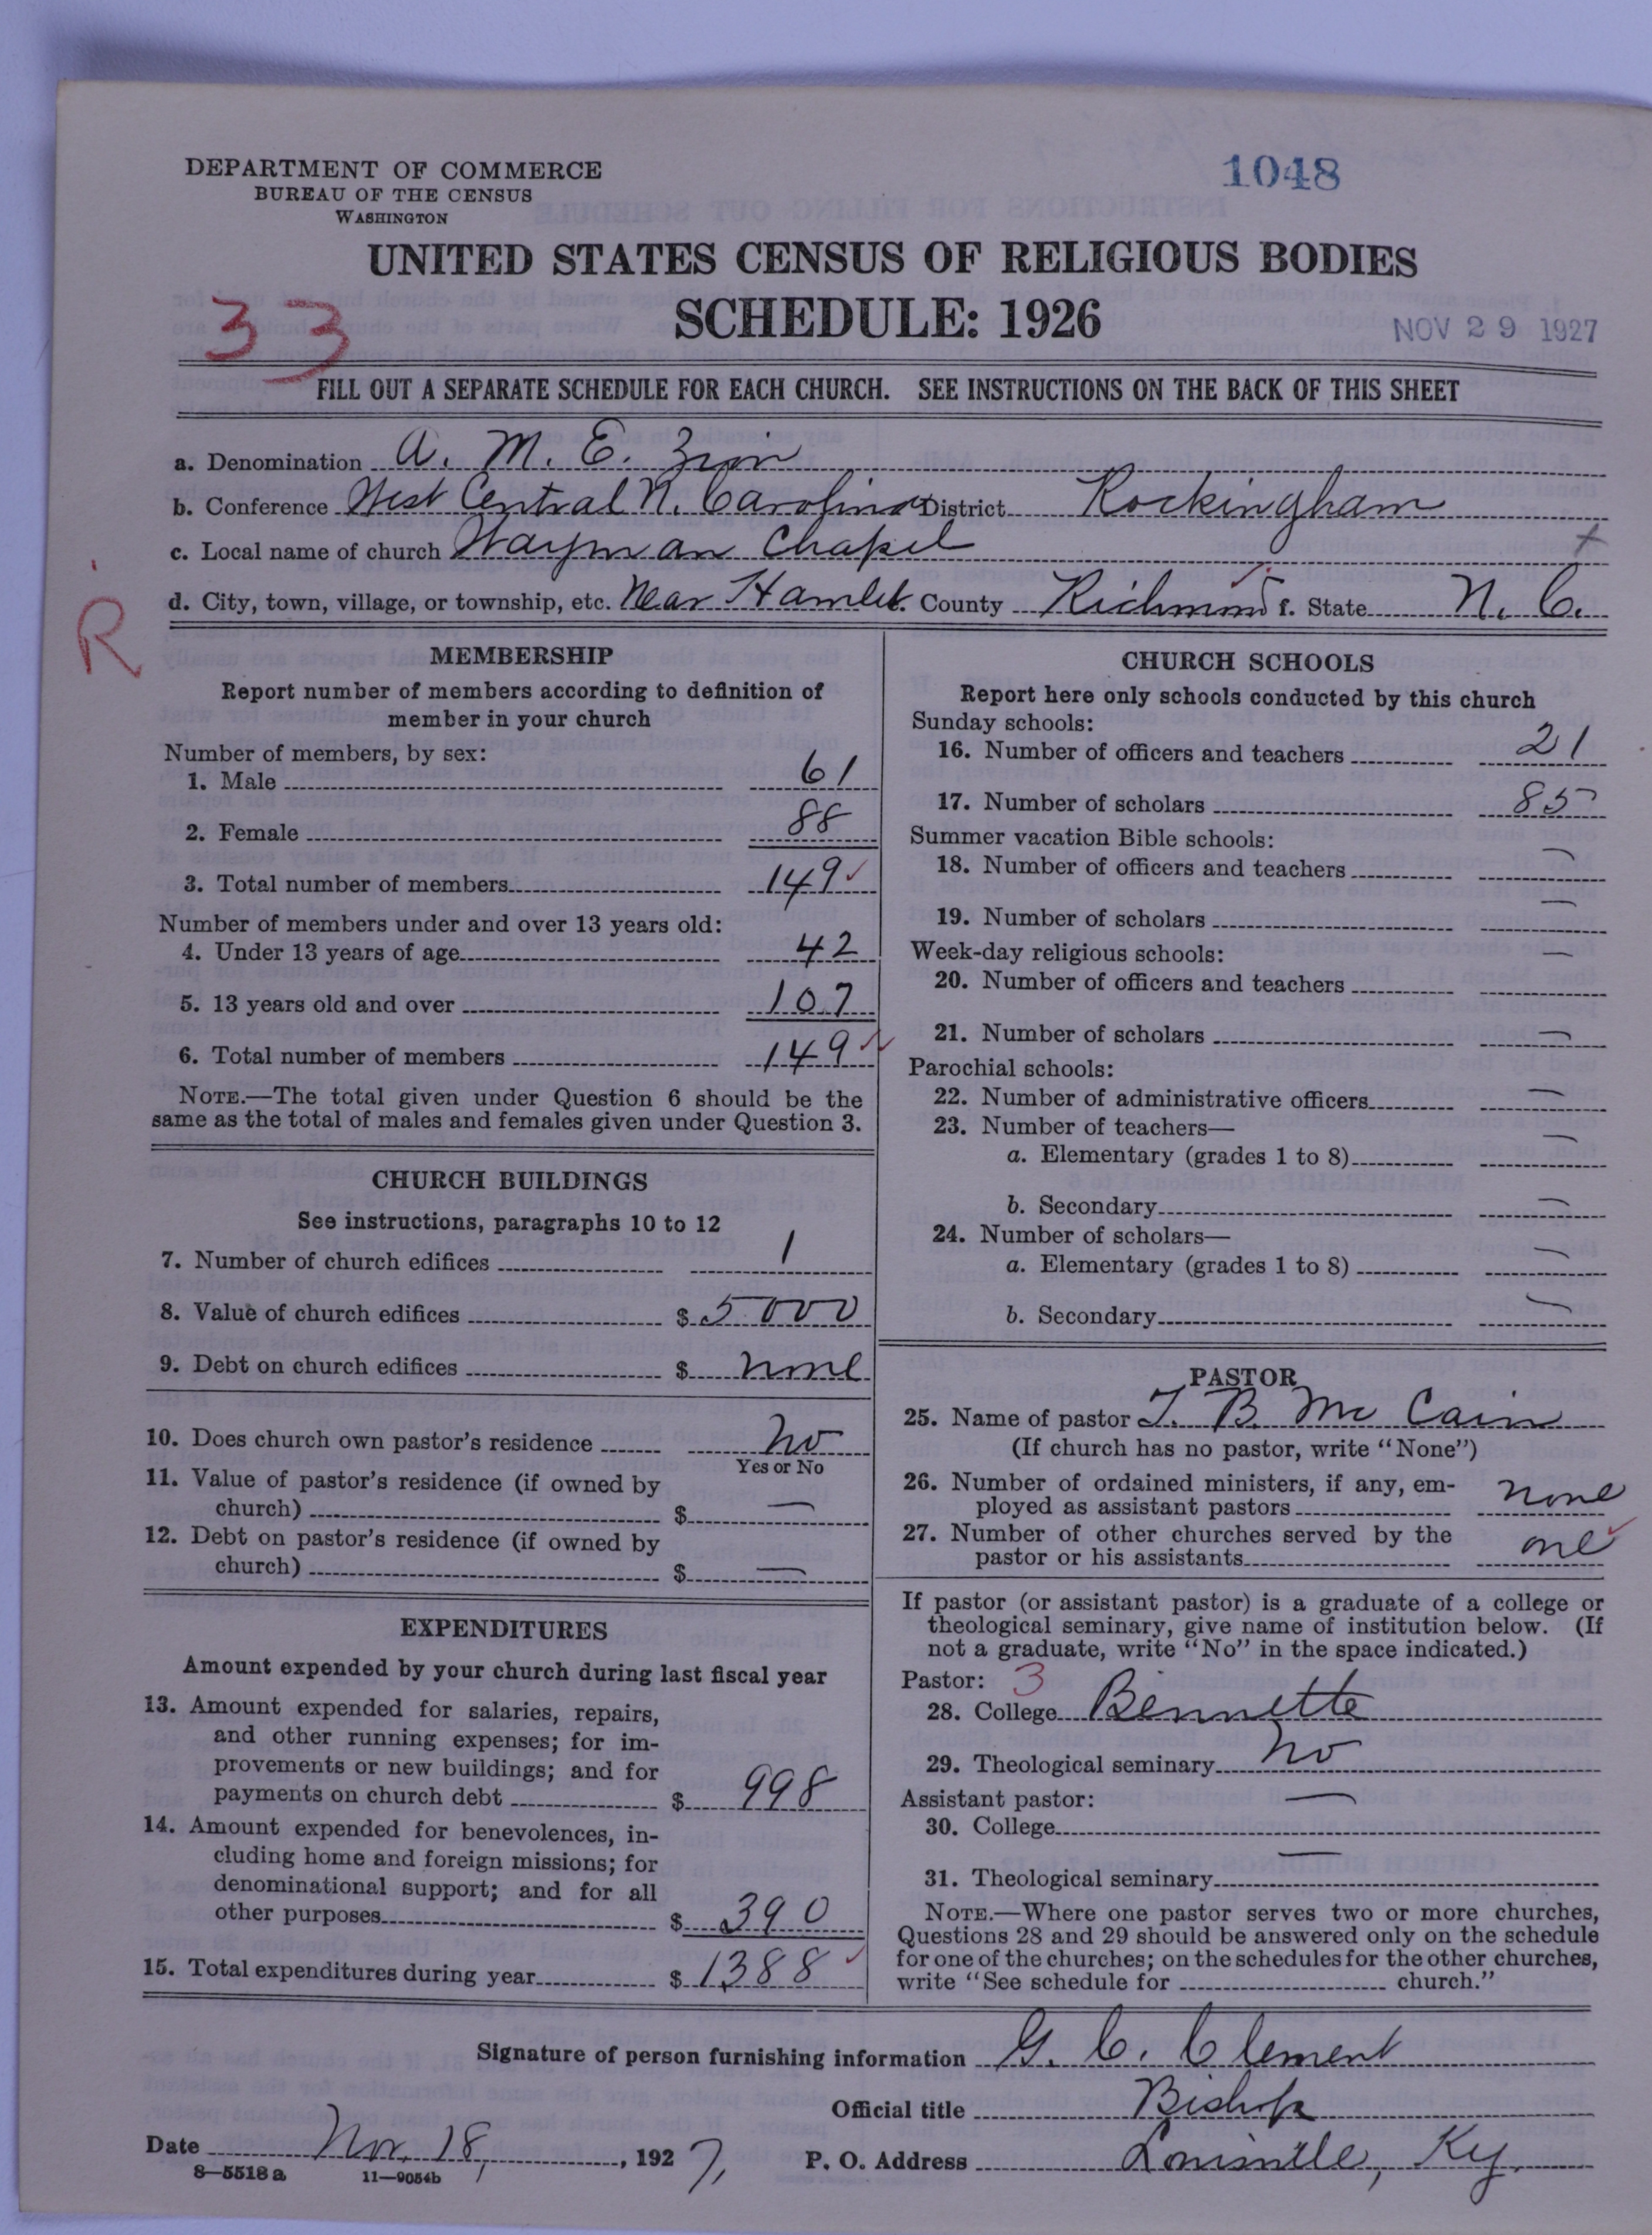 DEPARTMENT OF COMMERCE
BUREAU OF THE CENSUS
WASHINGTON
1048
UNITED STATES CENSUS OF RELIGIOUS BODIES
SCHEDULE: 1926
33
NOV 29 1927
FILL OUT A SEPARATE SCHEDULE FOR EACH CHURCH. SEE INSTRUCTIONS ON THE BACK OF THIS SHEET
a. Denomination A. M. E. Zion
b. Conference West Central N. Carolina District Rockingham
c. Local name of church Wayman Chapel
d. City, town, village, or township, etc. Near Hamlet. County Richmond f. State N. C.
R
MEMBERSHIP
Report number of members according to definition of
member in your church
Number of members, by sex:
1. Male 61
2. Female 88
3. Total number of members 149
Number of members under and over 13 years old:
4. Under 13 years of age 42
5. 13 years old and over 107
6. Total number of members 149
NOTE.—The total given under Question 6 should be the
same as the total of males and females given under Question 3.
CHURCH BUILDINGS
See instructions, paragraphs 10 to 12
7. Number of church edifices 1
8. Value of church edifices $ 5000
9. Debt on church edifices $ none
10. Does church own pastor's residence no
Yes or No
11. Value of pastor's residence (if owned by
church) $ —
12. Debt on pastor's residence (if owned by
church) $ —
EXPENDITURES
Amount expended by your church during last fiscal year
13. Amount expended for salaries, repairs,
and other running expenses; for im-
provements or new buildings; and for
payments on church debt $ 998
14. Amount expended for benevolences, in-
cluding home and foreign missions; for
denominational support; and for all
other purposes $ 390
15. Total expenditures during year $ 1388
CHURCH SCHOOLS
Report here only schools conducted by this church
Sunday schools:
16. Number of officers and teachers 21
17. Number of scholars 85
Summer vacation Bible schools:
18. Number of officers and teachers —
19. Number of scholars —
Week-day religious schools:
20. Number of officers and teachers —
21. Number of scholars —
Parochial schools:
22. Number of administrative officers —
23. Number of teachers—
a. Elementary (grades 1 to 8) —
b. Secondary —
24. Number of scholars—
a. Elementary (grades 1 to 8) —
b. Secondary —
PASTOR
25. Name of pastor T. B. McCain
(If church has no pastor, write "None")
26. Number of ordained ministers, if any, em-
ployed as assistant pastors none
27. Number of other churches served by the
pastor or his assistants one
If pastor (or assistant pastor) is a graduate of a college or
theological seminary, give name of institution below. (If
not a graduate, write "No" in the space indicated.)
Pastor: 3
28. College Bennette
29. Theological seminary no
Assistant pastor: —
30. College
31. Theological seminary —
NOTE.—Where one pastor serves two or more churches,
Questions 28 and 29 should be answered only on the schedule
for one of the churches; on the schedules for the other churches,
write "See schedule for church."
Signature of person furnishing information G. C. Clement
Official title Bishop
Date Nov. 18, 1927, P. O. Address Louisville, Ky.
8—5518 a 11—9054b